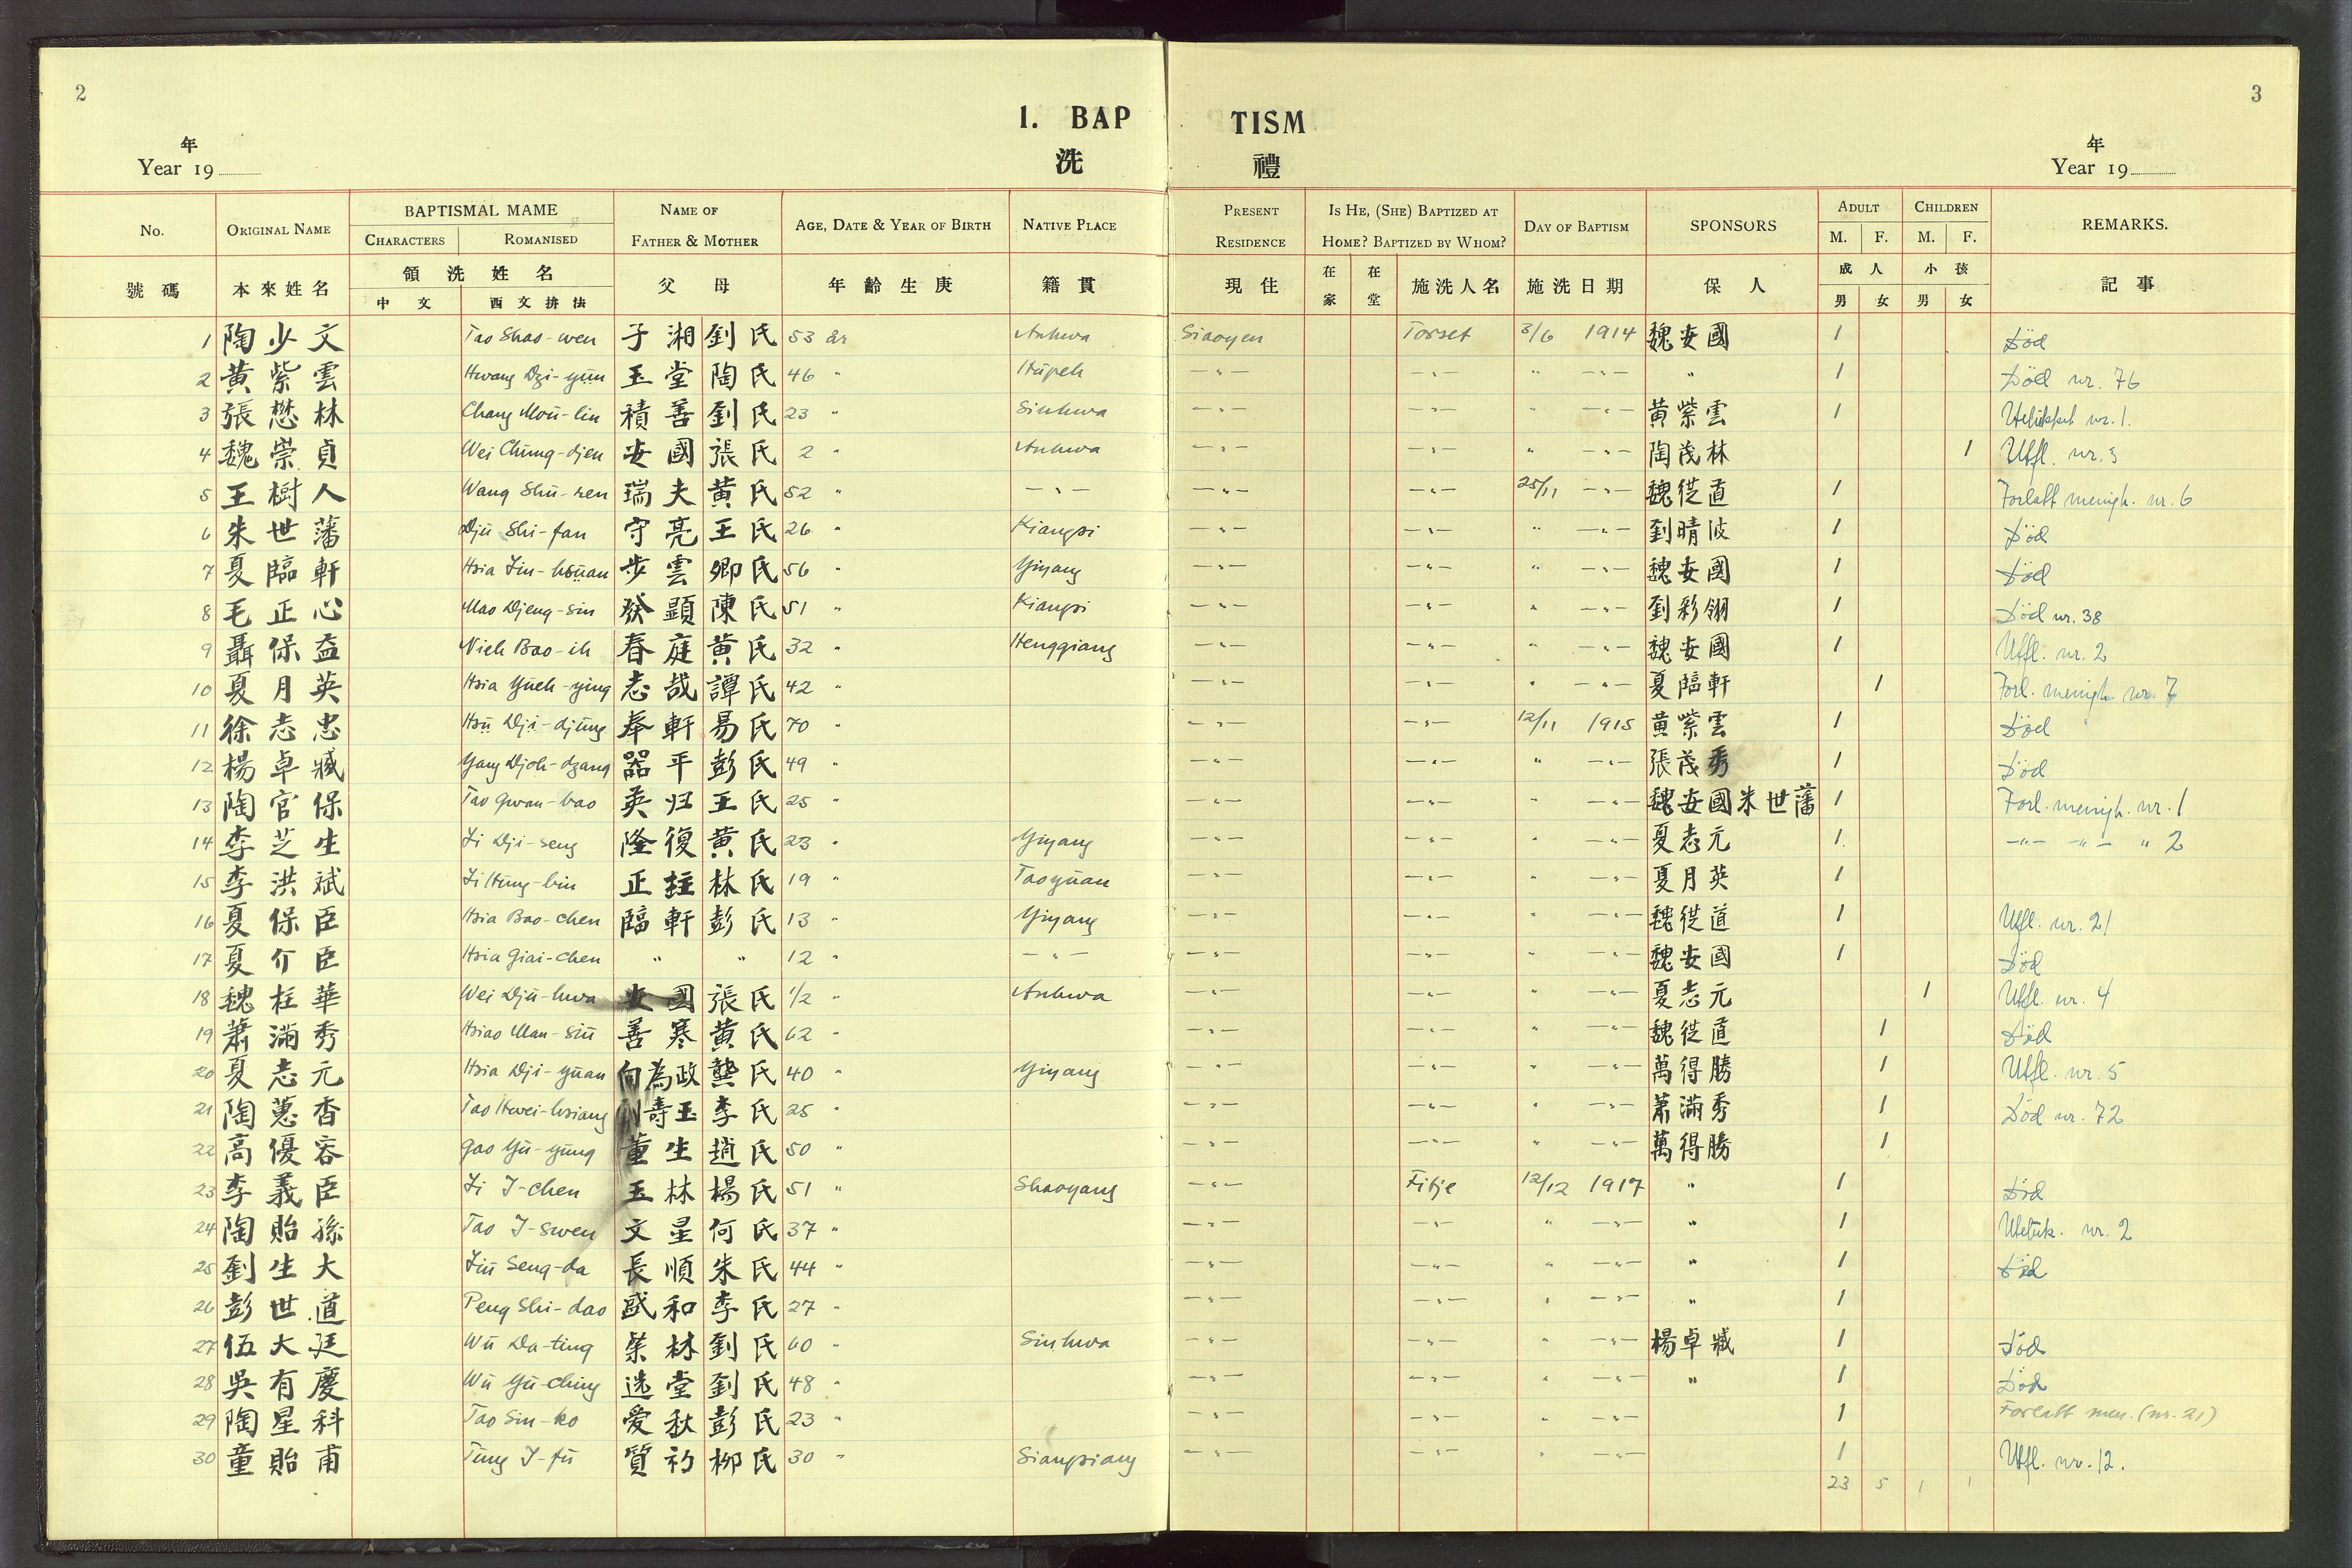 2
3
1. BAP TISM
洗 禮
年
Year 19
年
Year 19
No. ORIGINAL NAME BAPTISMAL MAME NAME OF FATHER & MOTHER AGE, DATE & YEAR OF BIRTH NATIVE PLACE PRESENT RESIDENCE IS HE, (SHE) BAPTIZED AT HOME? BAPTIZED BY WHOM? DAY OF BAPTISM SPONSORS ADULT CHILDREN REMARKS.
CHARACTERS ROMANISED M. F. M. F.
號碼 本來姓名 領洗姓名 父母 年齡生庚 籍貫 現住 在家 在堂 施洗人名 施洗日期 保人 成人 小孩 記事
中文 西文拚法 男 女 男 女
1 陶少文 Tao Shao-wen 子湘 劉氏 53 år Anhwa Siaoyen Torset 3/6 1914 魏安國 1 Död
2 黄紫雲 Hwang Dzi-yün 玉堂 陶氏 46 " Hüpeh -"- -"- " -"- " 1 Död nr. 76
3 張懋林 Chang Mou-lin 積善 劉氏 23 " Sinhwa -"- -"- " -"- 黄紫雲 1 Utelukket nr. 1.
4 魏崇貞 Wei Chung-djen 安國 張氏 2 " Anhwa -"- -"- " -"- 陶茂林 1 Utfl. nr. 3
5 王樹人 Wang Shü-ren 瑞夫 黄氏 52 " -"- -"- -"- 25/11 -"- 魏從道 1 Forlatt menigh. nr. 6
6 朱世藩 Djü Shi-fan 守亮 王氏 26 " Kiangsi -"- -"- " -"- 劉晴波 1 Död
7 夏臨軒 Hsia Lin-hsüan 步雲 卿氏 56 " Yiyang -"- -"- " -"- 魏安國 1 Död
8 毛正心 Mao Djeng-sin 發顯 陳氏 51 " Kiangsi -"- -"- " -"- 劉彩翎 1 Död nr. 38
9 聶保益 Nieh Bao-ih 春庭 黄氏 32 " Hengqiang -"- -"- " -"- 魏安國 1 Utfl. nr. 2
10 夏月英 Hsia Yüeh-ying 志哉 譚氏 42 " -"- " -"- 夏臨軒 1 Forl. menigh. nr. 7
11 徐志忠 Hsü Dji-djung 奉軒 易氏 70 " -"- -"- 12/11 1915 黄紫雲 1 Död
12 楊卓臧 Yang Djoh-dzang 器平 彭氏 49 " -"- -"- " -"- 張茂秀 1 Död
13 陶官保 Tao Gwan-bao 英归 王氏 25 " -"- -"- " -"- 魏安國朱世藩 1 Forl. menigh. nr. 1
14 李芝生 Li Dji-seng 隆復 黄氏 23 " Yiyang -"- -"- " -"- 夏志元 1 -"- -"- " 2
15 李洪斌 Li Hung-bin 正柱 林氏 19 " Taoyüan -"- -"- " -"- 夏月英 1
16 夏保臣 Hsia Bao-chen 臨軒 彭氏 13 " Yiyang -"- -"- " -"- 魏從道 1 Utfl. nr. 21
17 夏介臣 Hsia Giai-chen " " 12 " -"- -"- -"- " -"- 魏安國 1 Död
18 魏柱華 Wei Djü-hwa 安國 張氏 1/2 " Anhwa -"- -"- " -"- 夏志元 1 Utfl. nr. 4
19 蕭滿秀 Hsiao Man-siü 善寒 黄氏 62 " -"- -"- " -"- 魏從道 1 Död
20 夏志元 Hsia Dji-yüan 向為政 龔氏 40 " Yiyang -"- -"- " -"- 萬得勝 1 Utfl. nr. 5
21 陶蕙香 Tao Hwei-hsiang 壽玉 李氏 25 " -"- -"- " -"- 蕭滿秀 1 Död nr. 72
22 高優容 Gao Yu-yung 董生 趙氏 50 " -"- -"- " -"- 萬得勝 1
23 李義臣 Li I-chen 玉林 楊氏 51 " Shaoyang -"- Fitje 12/12 1917 " 1 Död
24 陶貽孫 Tao I-swen 文星 何氏 37 " -"- -"- " -"- " 1 Uteluk. nr. 2
25 劉生大 Liu Seng-da 長順 朱氏 44 " -"- -"- " -"- " 1 Död
26 彭世道 Peng Shi-dao 國和 李氏 27 " -"- -"- " -"- " 1
27 伍大廷 Wu Da-ting 榮林 劉氏 60 " Sinhwa -"- -"- " -"- 楊卓臧 1 Död
28 吳有慶 Wu Yu-ching 选堂 劉氏 48 " -"- -"- " -"- " 1 Död
29 陶星科 Tao Sin-ko 愛秋 彭氏 23 " -"- -"- " -"- 1 Forlatt men. (nr. 21)
30 童貽甫 Tung I-fu 質初 柳氏 30 " Siangsiang -"- -"- " -"- 1 Utfl. nr. 12.
23 5 1 1